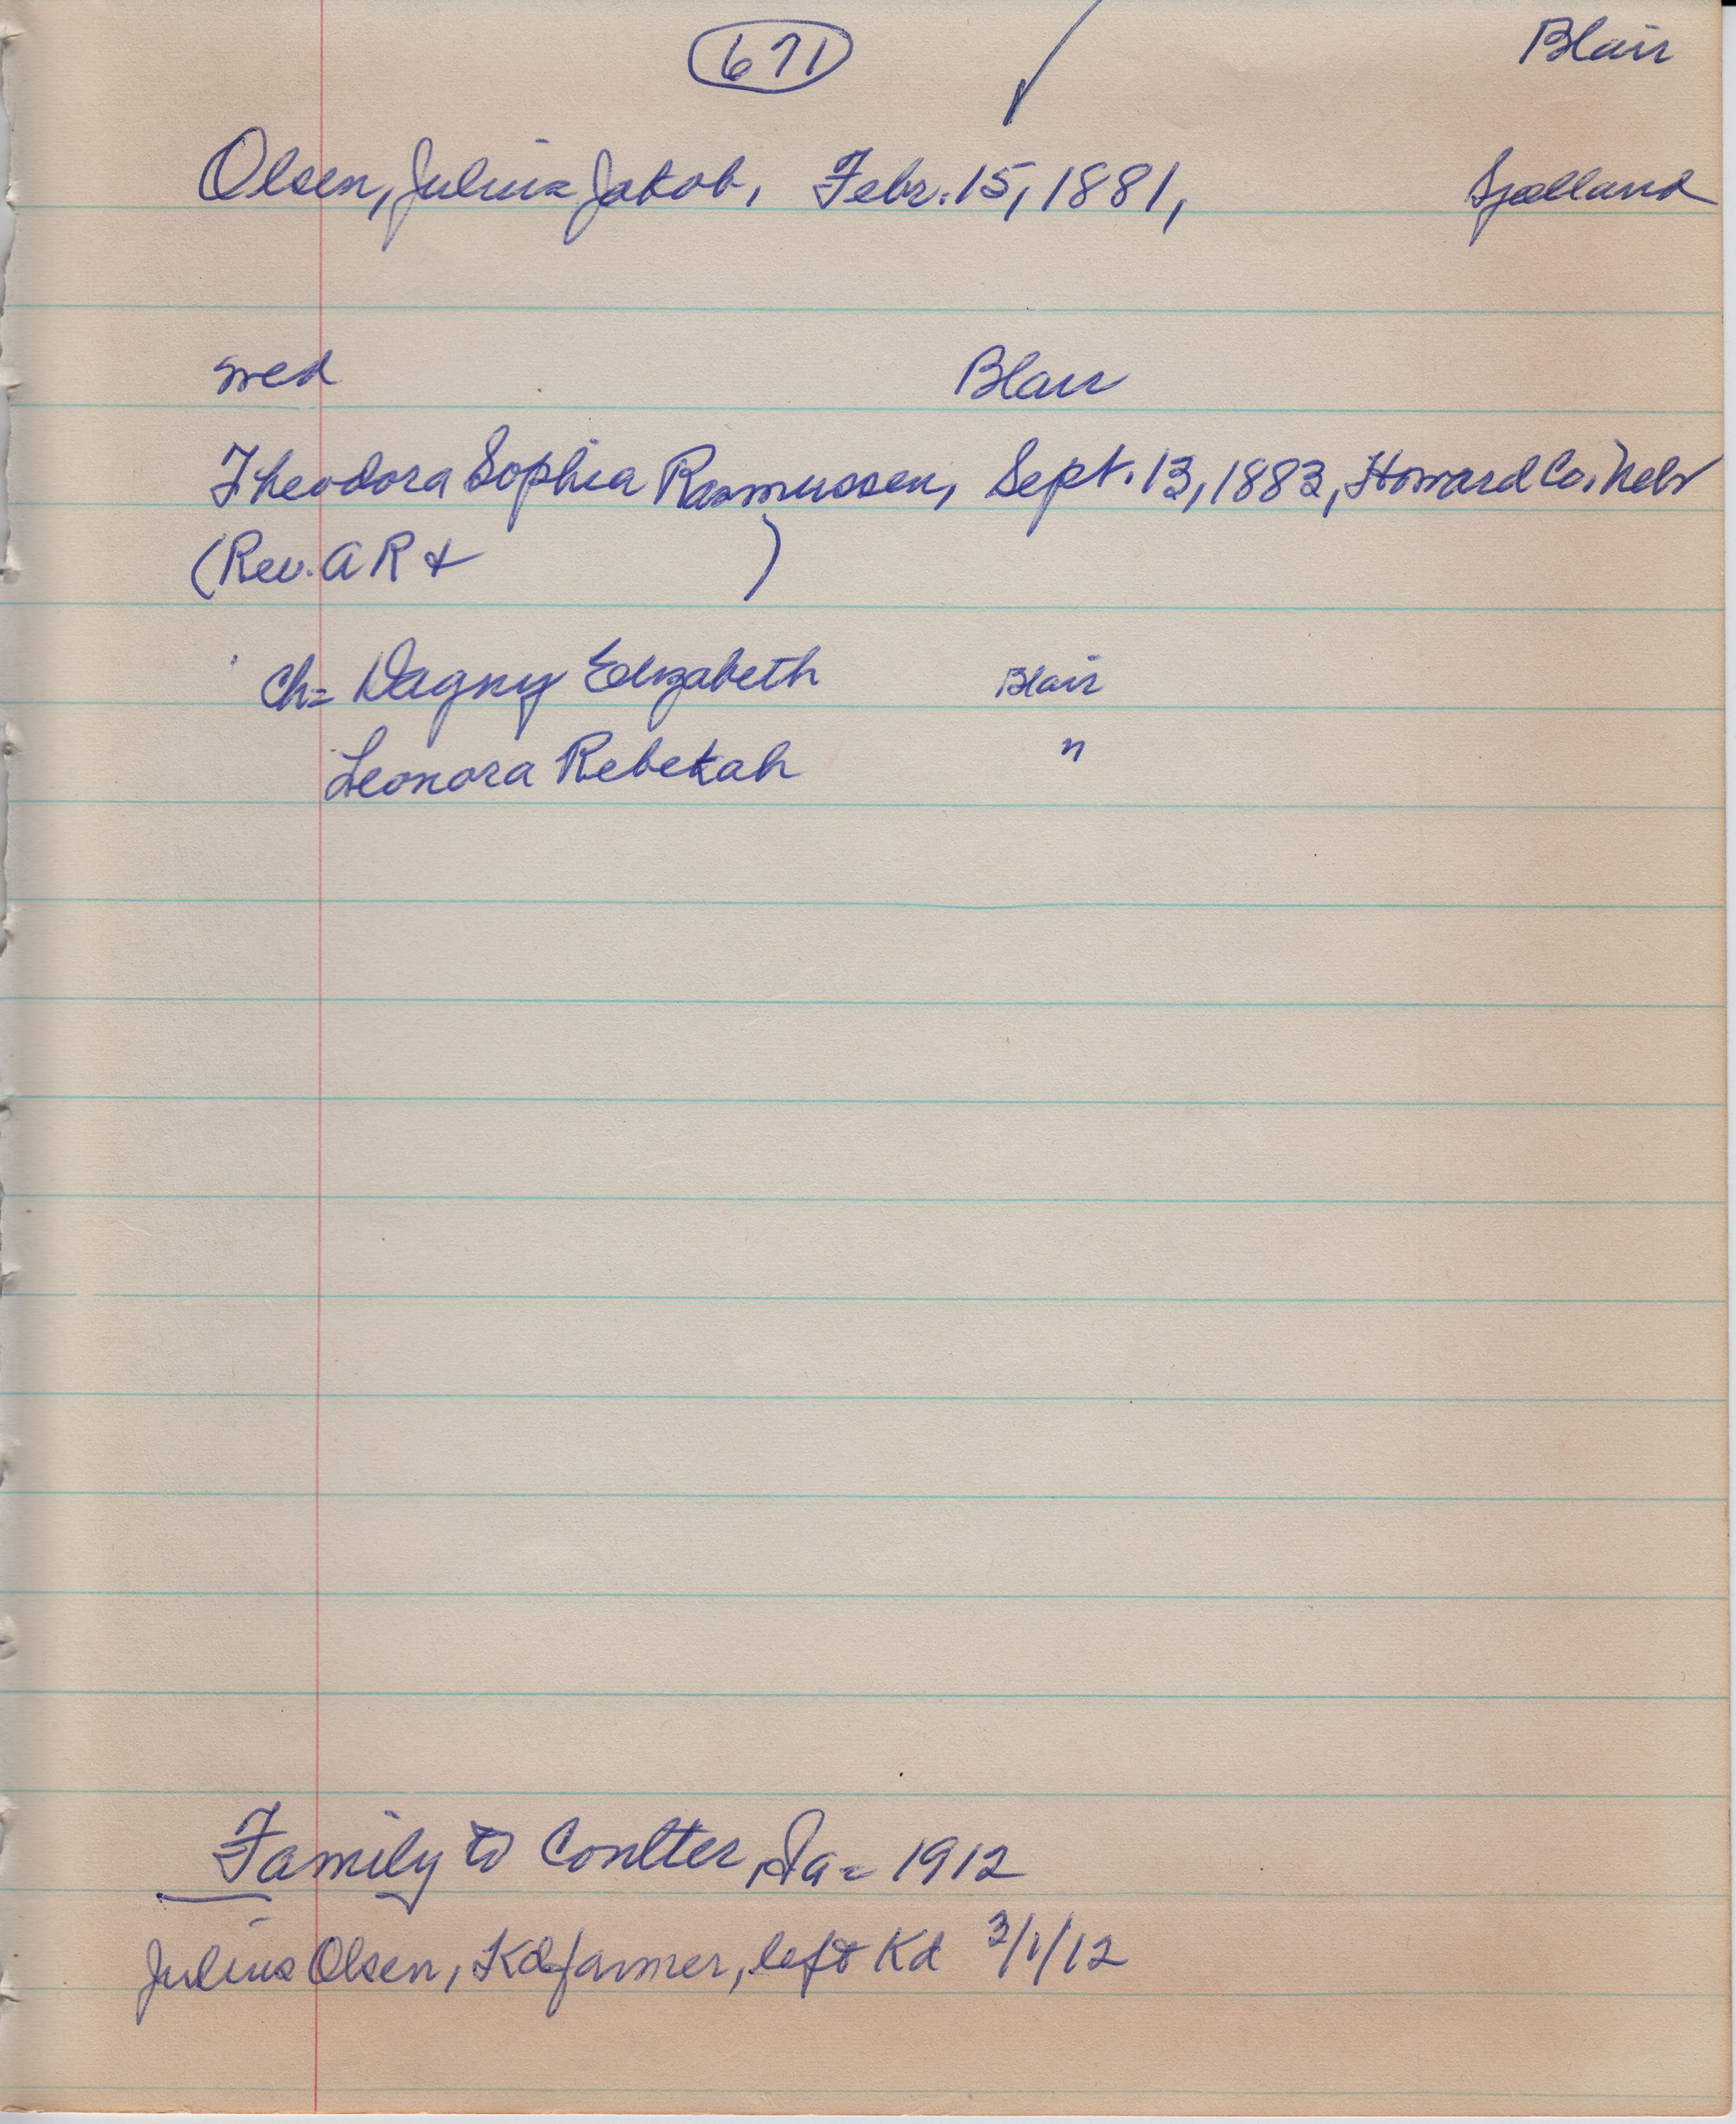 671 Blair
Olsen, Julius Jakob, Febr. 15, 1881, Sjælland
med Blair
Theodora Sophia Rasmussen, Sept. 13, 1883, Howard Co. Nebr
(Rev. A R & )
Ch= Dagny Elizabeth Blair
Leonora Rebekah "
Family to Coulter, Ia - 1912
Julius Olsen, Kd farmer, left Kd 3/1/12